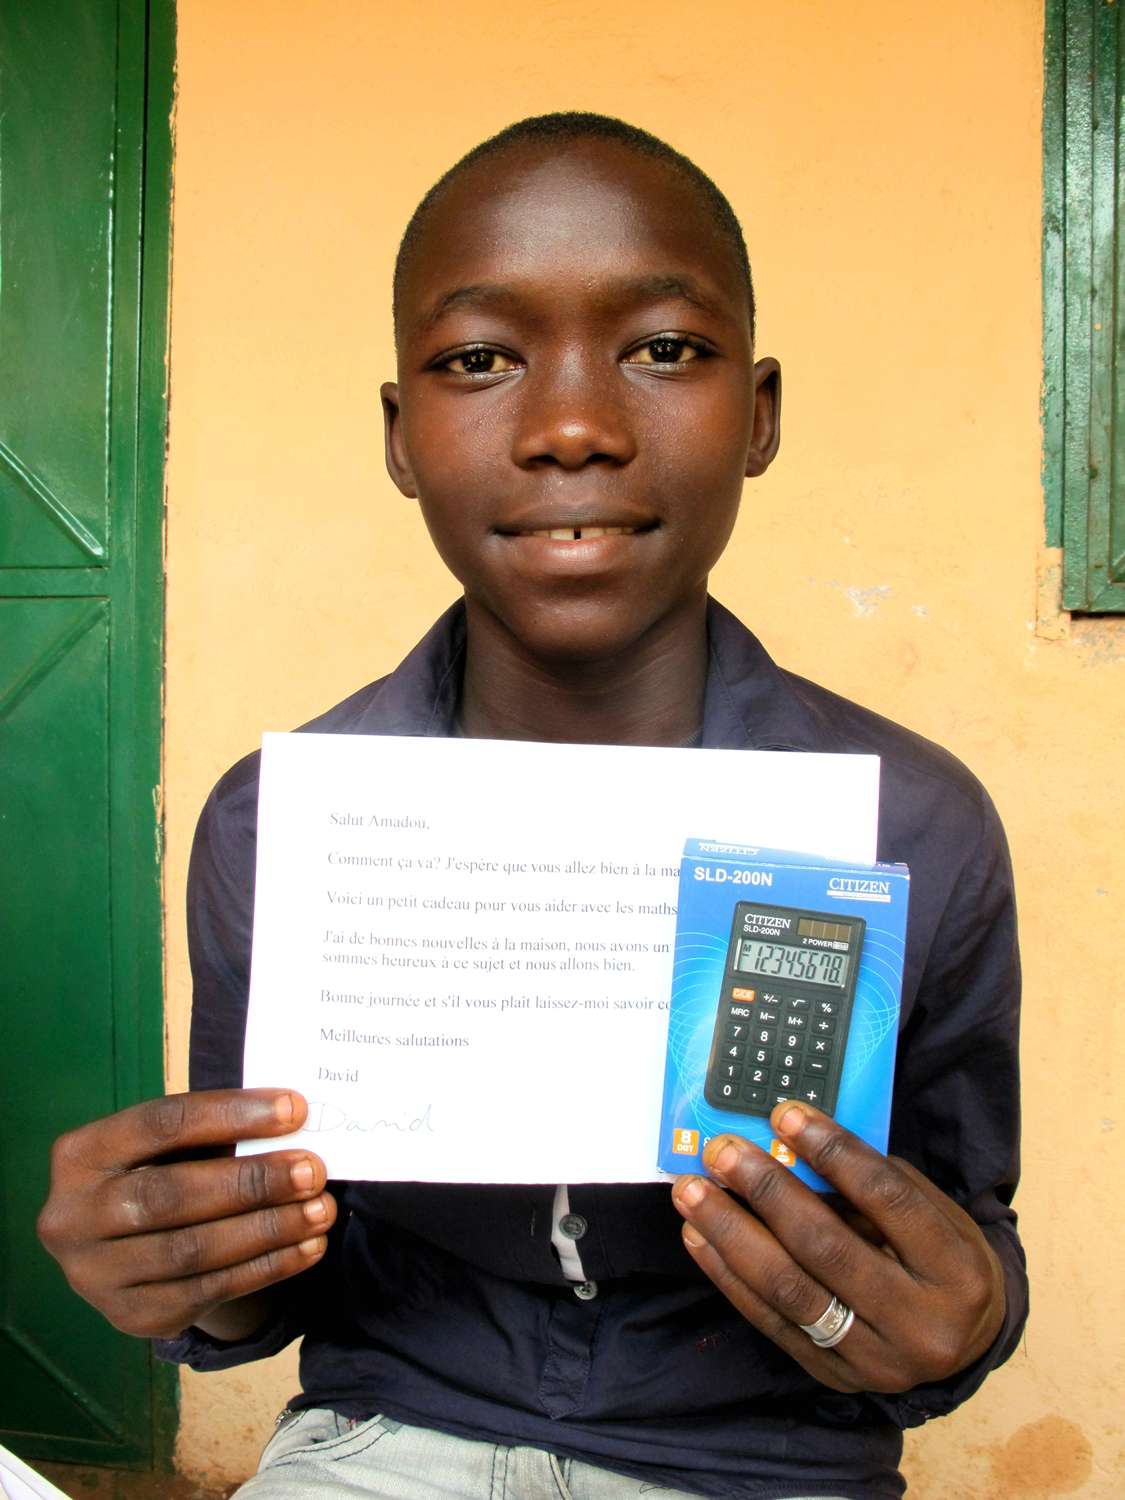 Salut Amadou,
Comment ça va? J'espère que vous allez bien à la
Voici un petit cadeau pour vous aider avec les maths
J'ai de bonnes nouvelles à la maison, nous avons un
sommes heureux à ce sujet et nous allons bien.
Bonne journée et s'il vous plaît laissez-moi savoir
Meilleures salutations
David
David
CITIZEN
SLD-200N
CITIZEN
CITIZEN
SLD-200N
2 POWER
M
-12345678.
CE/C +/- √ %
MRC M− M+ ÷
7 8 9 ×
4 5 6 −
1 2 3
0 . = +
8
DGT